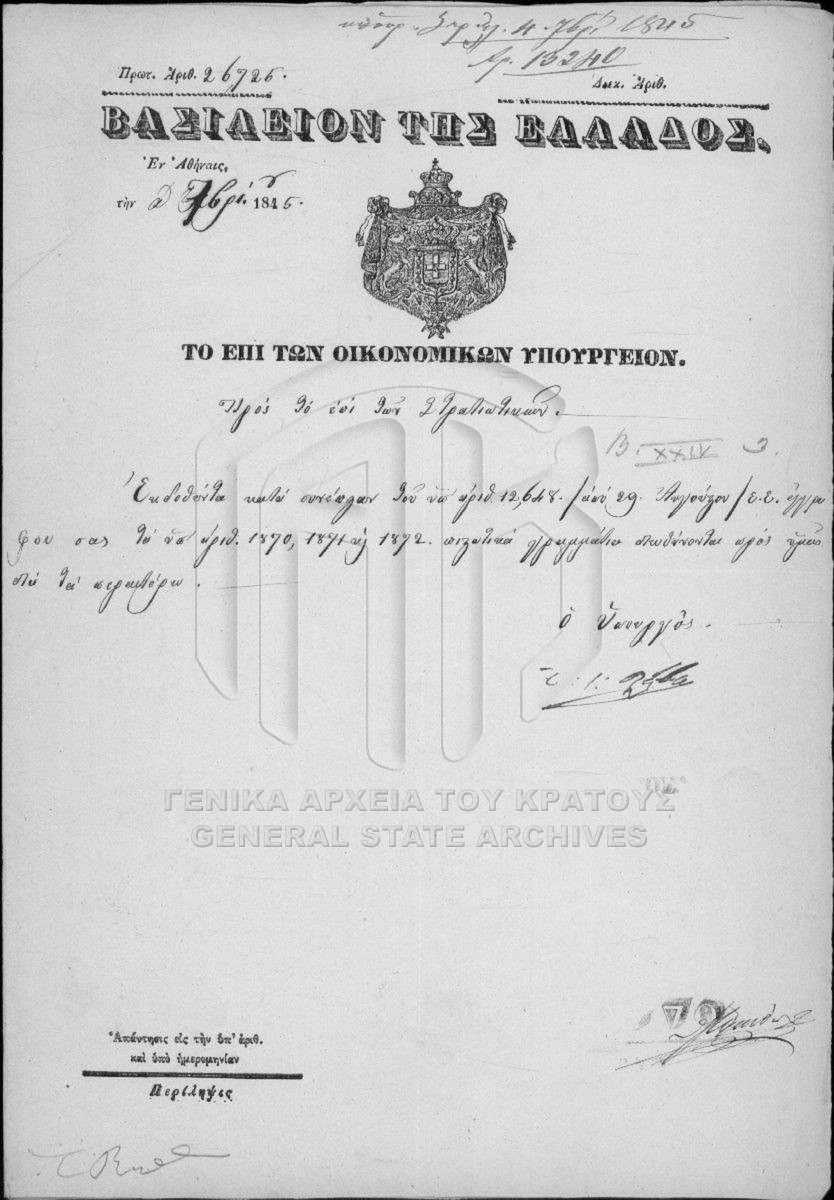 4 7βρί 1845
Αρ. 13240
Πρωτ. Ἀριθ. 26725.
Διεκ. Ἀριθ.
ΒΑΣΙΛΕΙΟΝ ΤΗΣ ΕΛΛΑΔΟΣ.
Ἐν Ἀθήναις,
τὴν 2 7βρίου 1845.
ΤΟ ΕΠΙ ΤΩΝ ΟΙΚΟΝΟΜΙΚΩΝ ΥΠΟΥΡΓΕΙΟΝ.
Πρός τό ἐπί τῶν Στρατιωτικῶν.
B. XXIV 3.
Ἐκδοθέντα κατά συνέπειαν τοῦ ὑπ ἀριθ. 12,648. / ἀπό 29 Αὐγούστου / ἐ. ἔ. ἐγγρά
φου σας τά ὑπ ἀριθ. 1870, 1871 κ 1872. πιστωτικά γραμμάτια διευθύνονται πρός ὑμᾶς
διά τά περαιτέρω.
ὁ Ὑπουργός.
ΓΕΝΙΚΑ ΑΡΧΕΙΑ ΤΟΥ ΚΡΑΤΟΥΣ
GENERAL STATE ARCHIVES
Ἀπάντησις εἰς τὴν ὑπ' ἀριθ.
καὶ ὑπὸ ἡμερομηνίαν
Περίληψις